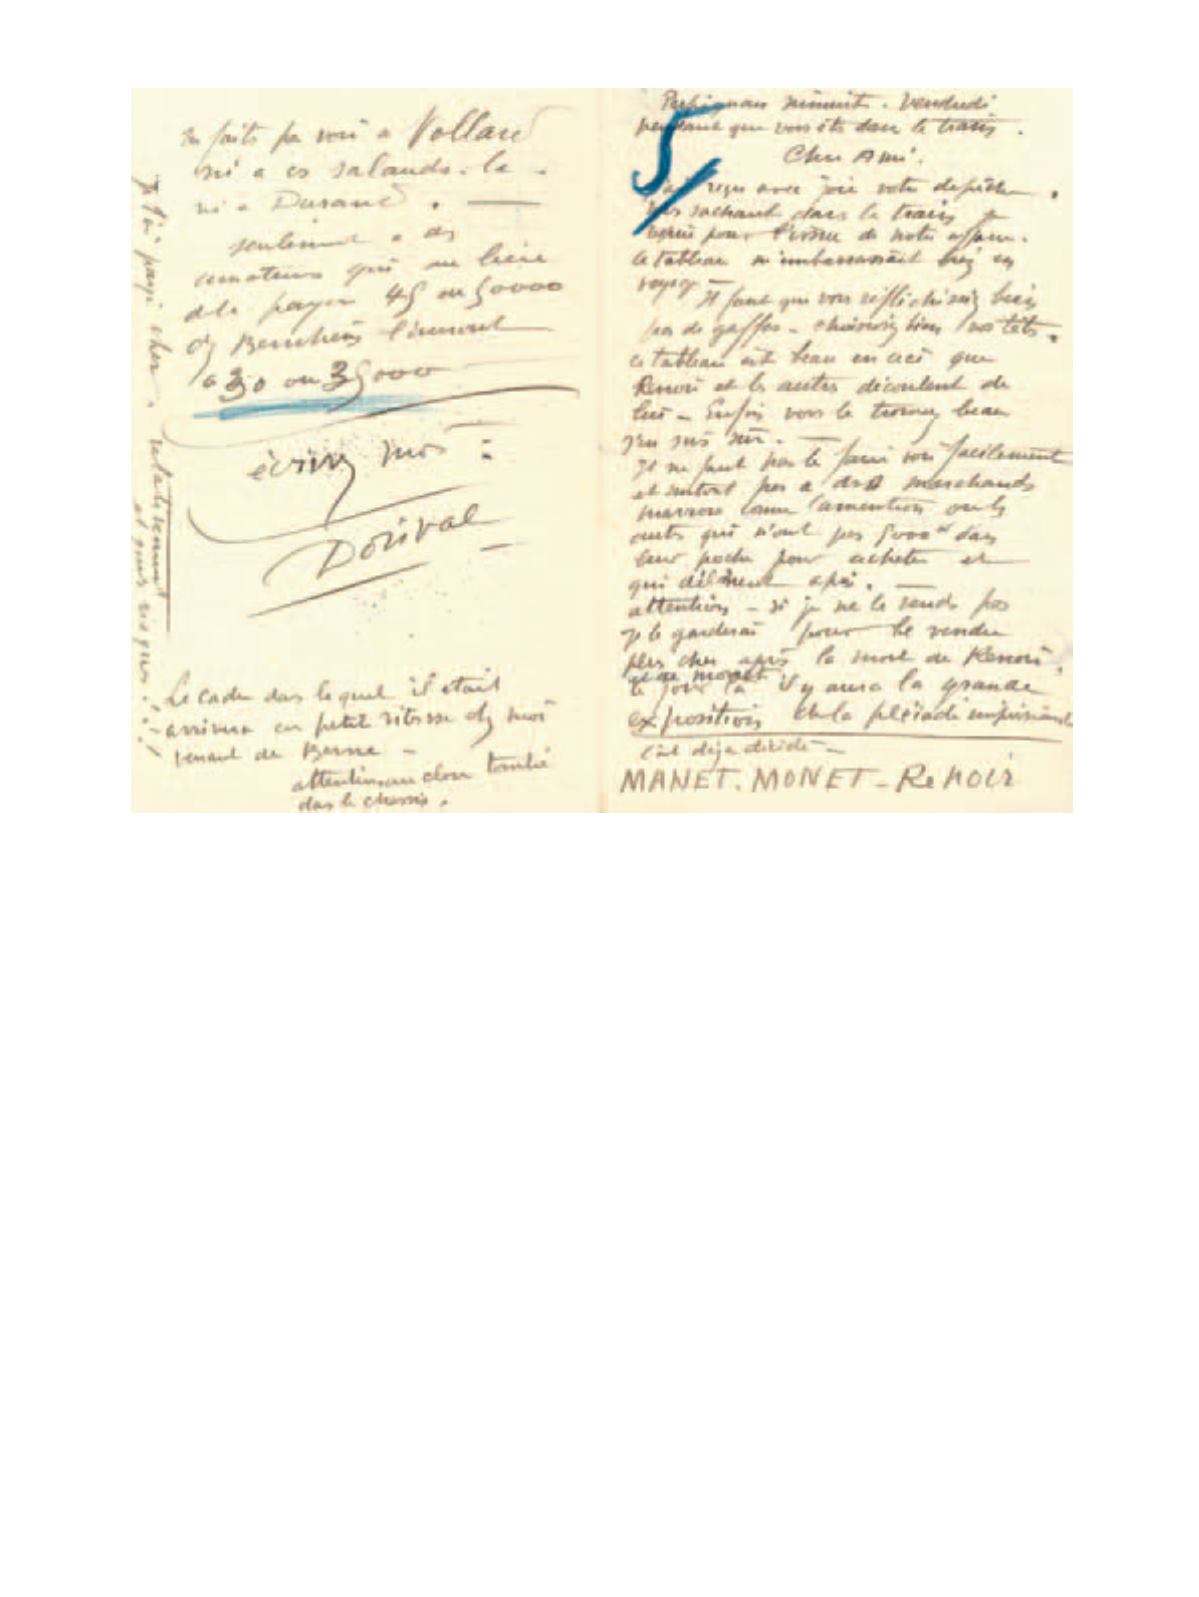 Perpignan minuit. Vendredi
pendant que vous êts dans le train.
Cher Ami.
J'ai reçu avec joie votre depêche.
Vous sachant dans le train je
pour l'issue de notre affaire.
le tableau m'embarrassait bien en
voyage —
Il faut que vous réflichissiez bien
pas de gaffes — choisissez bien vos têts.
ce tableau est beau en ceci que
Renoir et les autres découlent de
lui — Enfin vous le trouvez beau
j'en suis sûr. —
Il ne faut pas le faire voir facilement
et surtout pas a des marchands
marrons comme ou les
autres qui n'ont pas 5000 dans
leur poche pour acheter et
qui après. —
attention — si je ne le vends pas
je le garderai pour le vendre
plus cher après la mort de Renoir
et de Monet
le jour la il y aura la grande
exposition de la pléiade impressionniste
c'est deja décidé —
MANET. MONET — Renoir
faits pas voir a Vollard
ni a ces salauds. le
ni a Durand. —
seulement a des
amateurs qui au lieu
de le payer 45 ou 50000
chez Bernheim l'auront
a 30 ou 35000
écrivez moi :
Dorival
Je l'ai payé cher. relativement
et gros risques !!!
Le cadre dans lequel il était
arrivera en petite vitesse chez moi
venant de Berne —
attention au clou tombé
dans le chassis.
5/